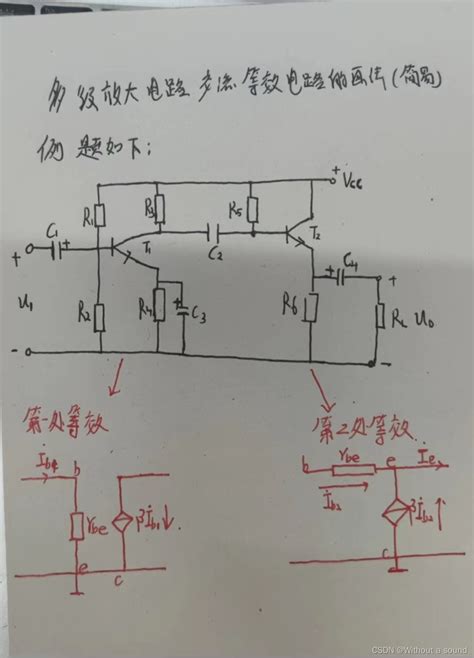 多级放大电路交流等效电路的画法(简易)
例题如下:
+ Vcc
R1
R3
R5
C1
+
T1
C2
T2
+
U1
-
R2
R4
+
C3
R6
+
C4
+
RL
U0
-
第一处等效
第2处等效
b
rbe
βİb1↓
e
c
b
rbe
e
Ie
İb2
βİb2↑
c
CSDN @Without a sound